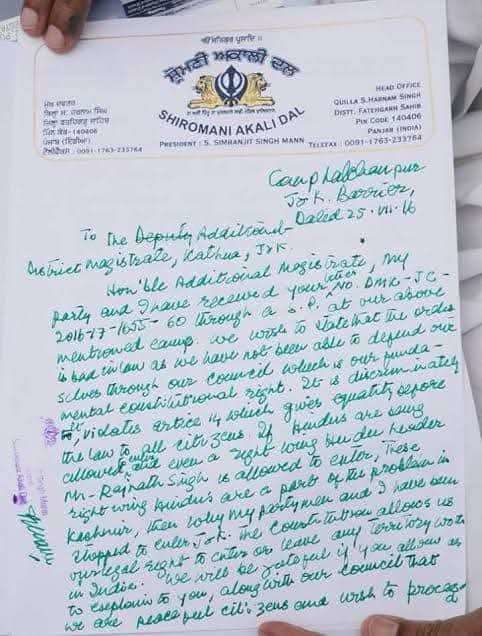 ੴ ਸਤਿਗੁਰ ਪ੍ਰਸਾਦਿ ॥
ਸ਼੍ਰੋਮਣੀ ਅਕਾਲੀ ਦਲ
SHIROMANI AKALI DAL
PRESIDENT : S. SIMRANJIT SINGH MANN
ਮੁੱਖ ਦਫਤਰ
ਕਿਲ੍ਹਾ ਸ. ਹਰਨਾਮ ਸਿੰਘ
ਜ਼ਿਲਾ ਫਤਹਿਗੜ੍ਹ ਸਾਹਿਬ
ਪਿੰਨ ਕੋਡ-140406
ਪੰਜਾਬ (ਇੰਡੀਆ)
ਟੈਲੀਫੈਕਸ : 0091-1763-233764
HEAD OFFICE
QUILLA S.HARNAM SINGH
DISTT. FATEHGARH SAHIB
PIN CODE 140406
PANJAB (INDIA)
TELEFAX : 0091-1763-233764
Camp Lakhanpur
J&K. Barrier,
Dated 25.VII.16
To the Deputy Additional
District Magistrate, Kathua, J&K.
Hon'ble Additional Magistrate, My
party and I have received your letter No. DMK-JC-
2016-17-1655-60 through a S.P. at our above
mentioned camp. We wish to state that the order
is bad in law as we have not been able to defend our
selves through our council which is our funda-
mental constitutional right. It is discriminately
&, violates artice 14 which gives equality before
the law to all citizens. If Hindus are being
allowed, and even a right wing Hindu leader
Mr-Rajnath Singh is allowed to enter, these
right wing Hindus are a part of the problem in
Kashmir, then why my party men and I have been
stopped to enter J&K. The Constitution allows us
our legal right to enter or leave any territory
in India. We will be grateful if you allow us
to explain to you, along with our council that
we are peaceful citizens and wish to proceed